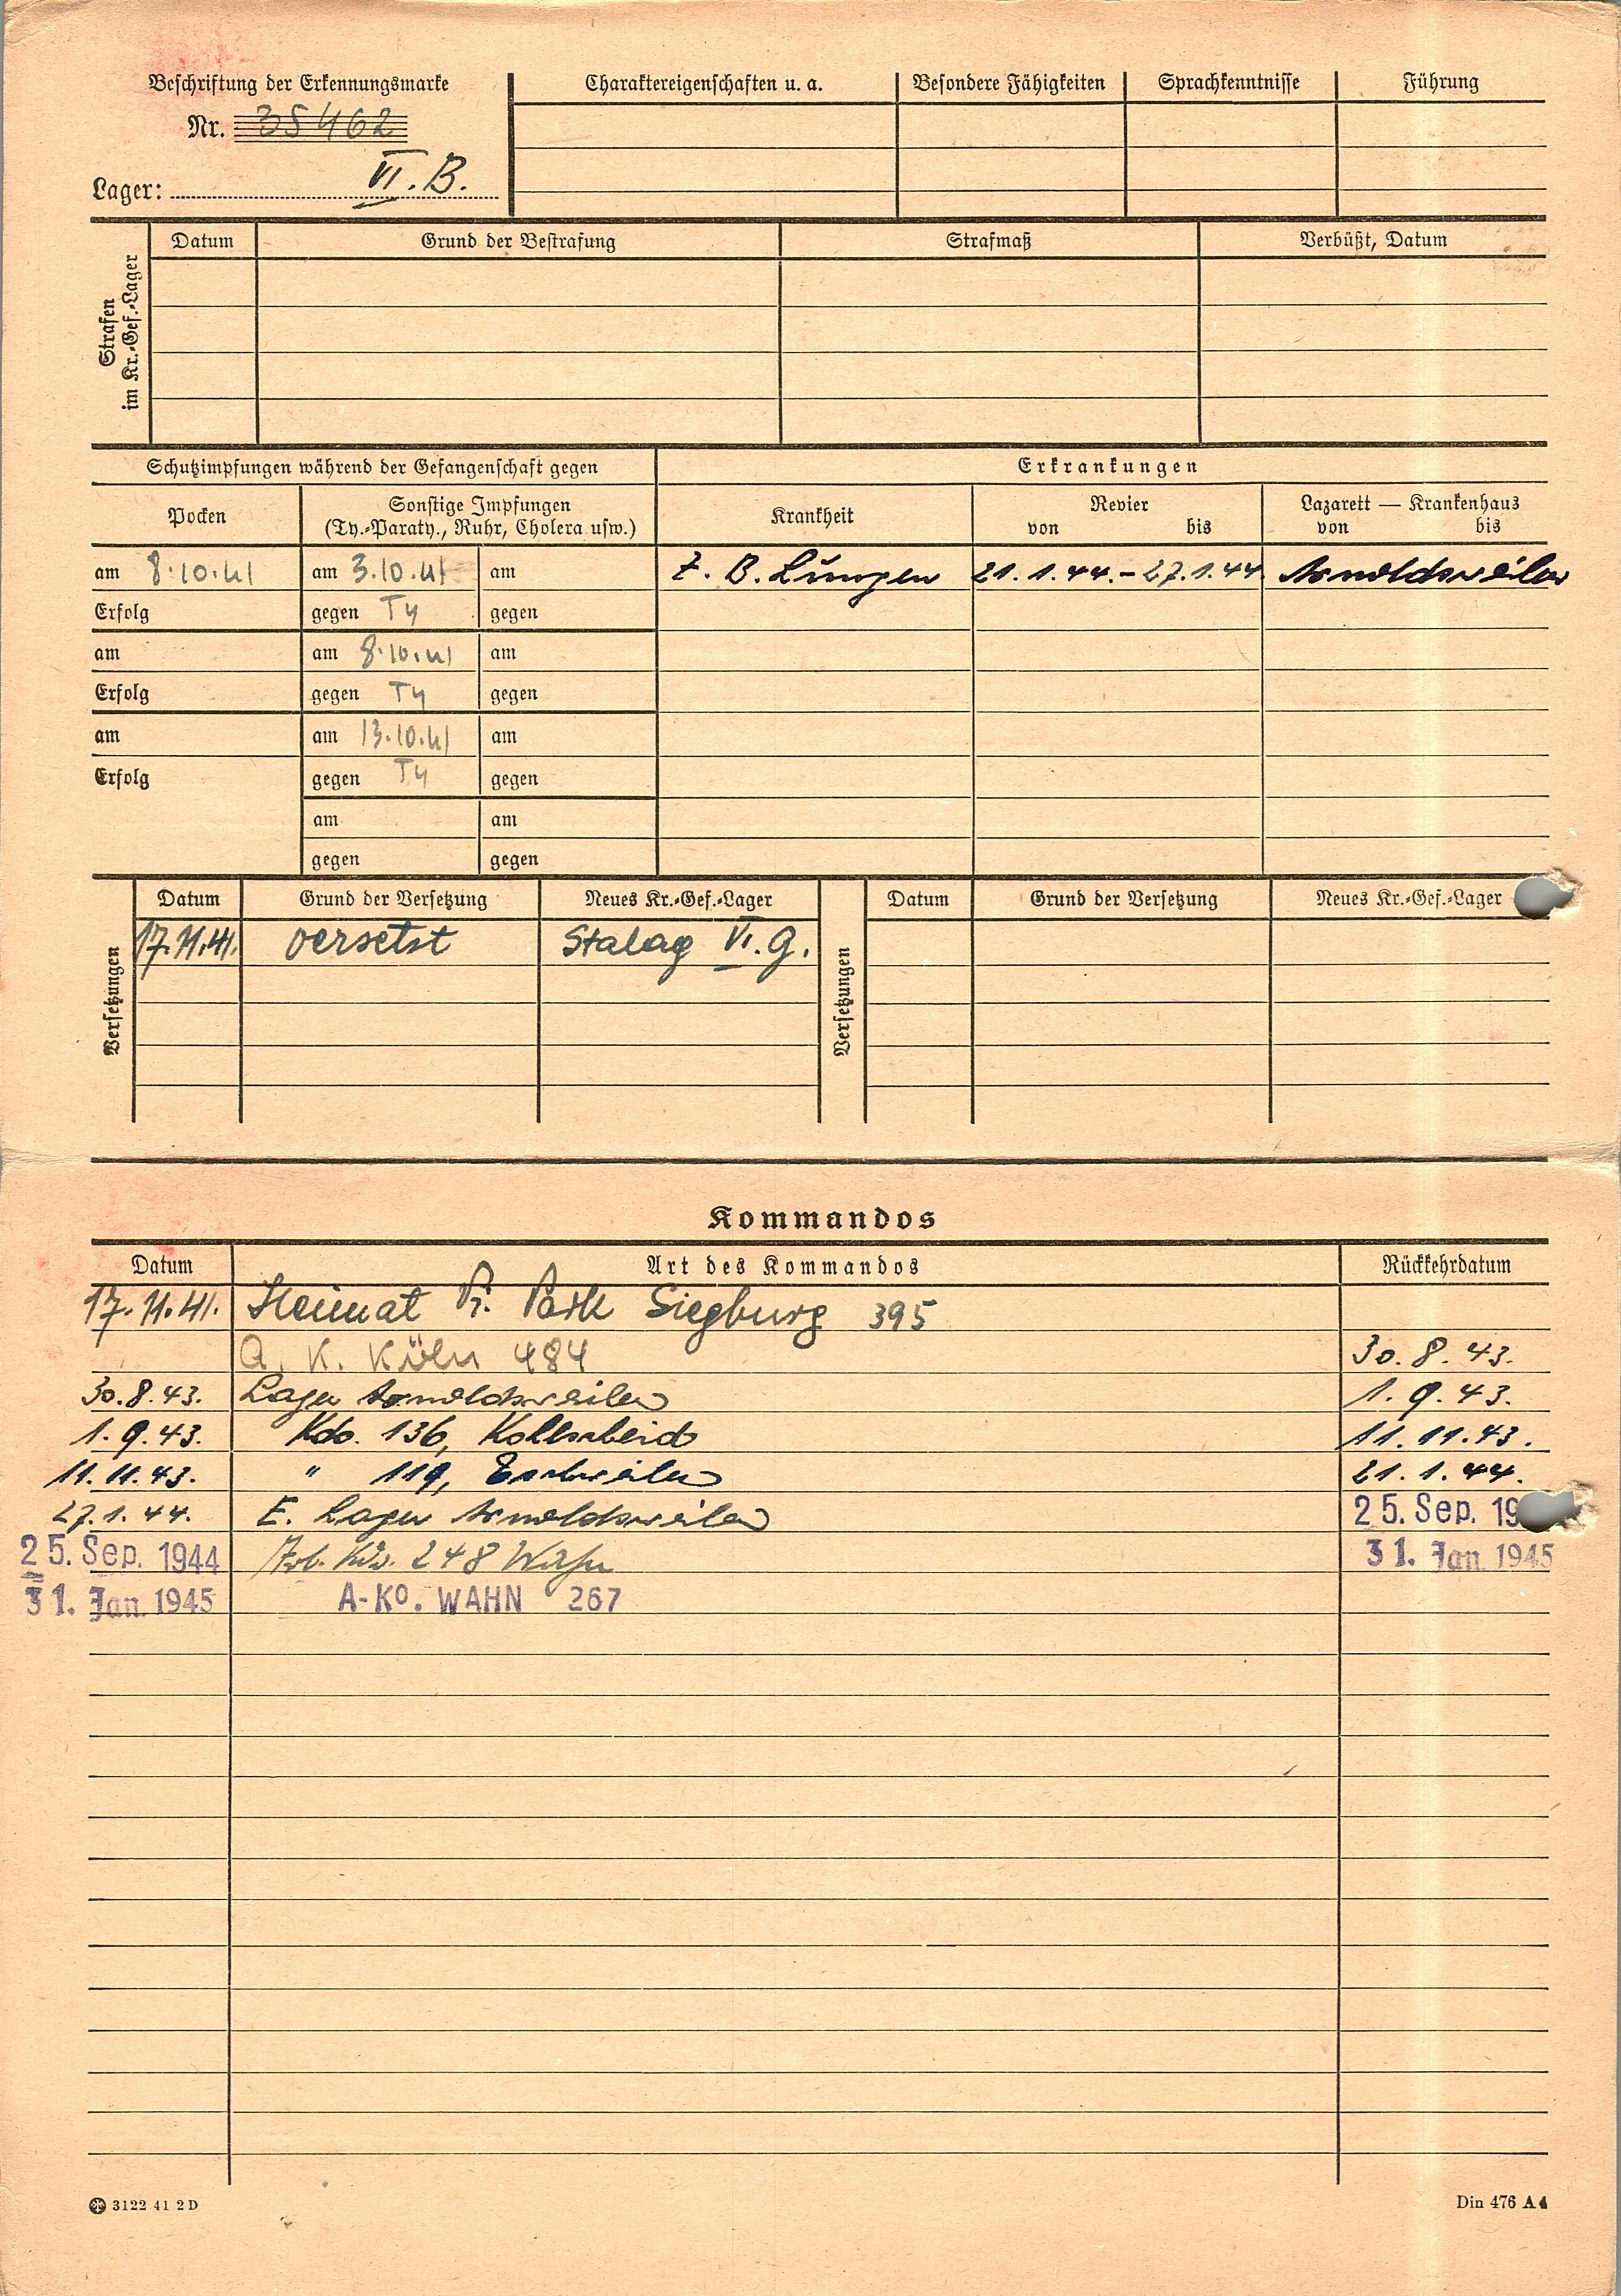 Beschriftung der Erkennungsmarke
Nr. 35462
Lager: VI. B.
Charaktereigenschaften u. a. Besondere Fähigkeiten Sprachkenntnisse Führung
Strafen
im Kr.-Gef.-Lager
Datum Grund der Bestrafung Strafmaß Verbüßt, Datum
Schutzimpfungen während der Gefangenschaft gegen
Erkrankungen
Pocken
Sonstige Impfungen
(Ty.-Paraty., Ruhr, Cholera usw.)
Krankheit
Revier
von bis
Lazarett — Krankenhaus
von bis
am 8.10.41 am 3.10.41 am
Z. B. Lungen 21.1.44.-27.1.44 Arnoldsweiler
Erfolg gegen Ty gegen
am am 8.10.41 am
Erfolg gegen Ty gegen
am am 13.10.41 am
Erfolg gegen Ty gegen
am am
gegen gegen
Versetzungen
Datum Grund der Versetzung Neues Kr.-Gef.-Lager
17.11.41. versetzt Stalag VI. G.
Versetzungen
Datum Grund der Versetzung Neues Kr.-Gef.-Lager
Kommandos
Datum Art des Kommandos Rückkehrdatum
17.11.41. Heimat Pi. Park Siegburg 395
A. K. Köln 484 30.8.43.
30.8.43. Lager Arnoldsweiler 1.9.43.
1.9.43. Kdo. 136, Kohlscheid 11.11.43.
11.11.43. " 119, Eschweiler 21.1.44.
27.1.44. E. Lager Arnoldsweiler 25. Sep. 19
25. Sep. 1944 Arb. Kdo. 248 Wahn 31. Jan. 1945
31. Jan. 1945 A-Ko. WAHN 267
3122 41 2 D
Din 476 A 4